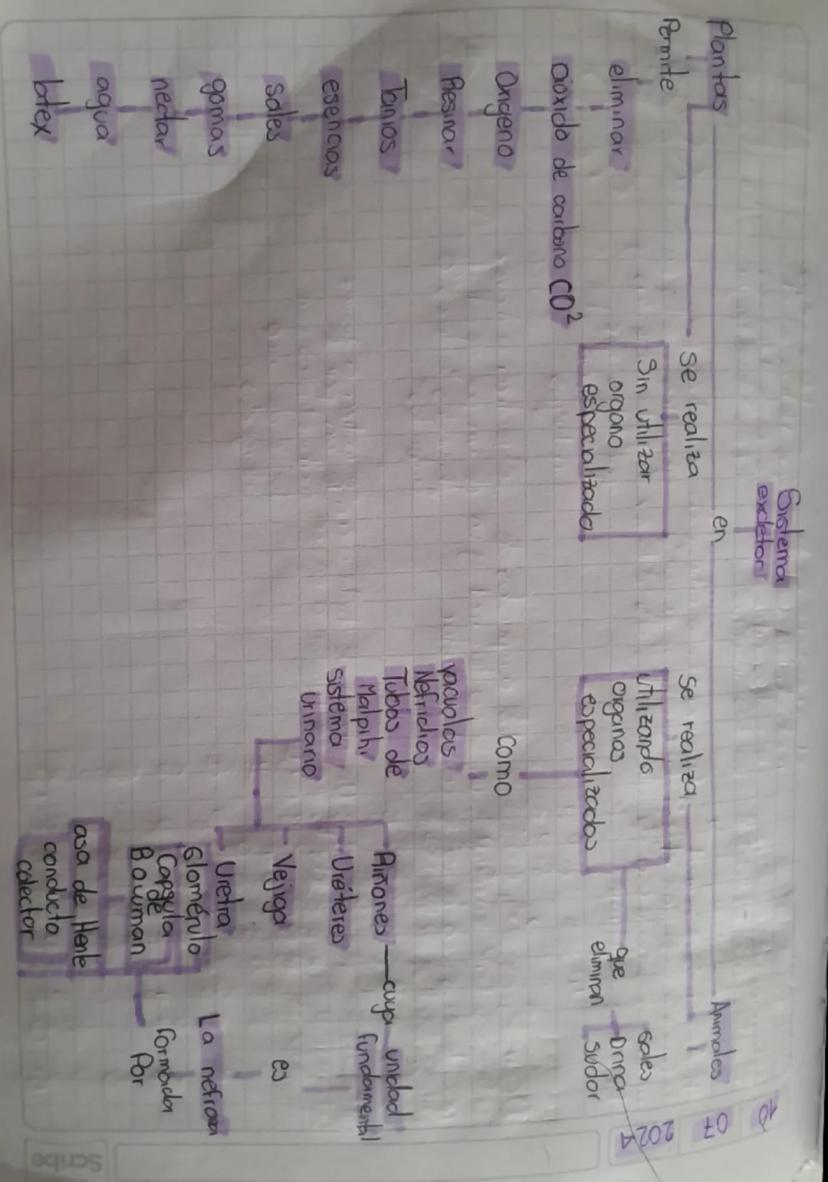 10 07 2021
Sistema
excretor
en
Plantas
Permite
eliminar
Dióxido de carbono CO²
Oxigeno
Resinar
Tanios
esencias
sales
gomas
nectar
agua
latex
se realiza
Sin utilizar
organo
especializado
Animales
se realiza
utilizando
organos
especializados
que
eliminan
sales
Orina
sudor
como
vacuolas
Nefridios
Tubos de
Malpihi
sistema
urinario
Riñones
Uréteres
Vejiga
Uretra
cuya unidad
fundamental
es
La nefrona
formada
Por
Glomérulo
Capsula
de
Bowman
asa de Henle
conducto
colector
Scribe